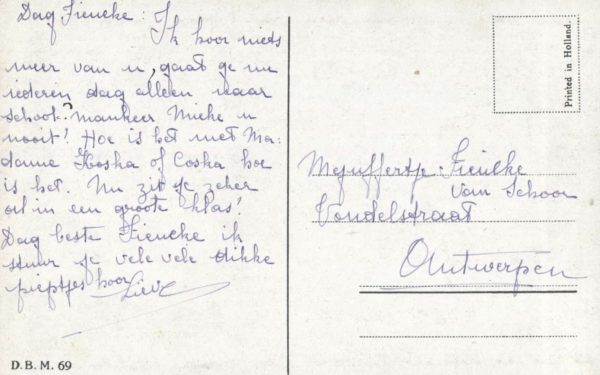 Dag Fieneke:
Ik hoor niets
meer van u, gaat ge nu
iederen dag alleen naar
school? mankeer Mieke u
nooit! Hoe is het met Ma-
dame Koska of Coska hoe
is het. Nu zit je zeker
al in een groote klas!
Dag beste Fieneke ik
stuur je vele vele dikke
pieptjes hoor
Lieve
D.B.M. 69
Printed in Holland.
Mejuffertje Fieneke
van Schoor
Vondelstraat
Antwerpen